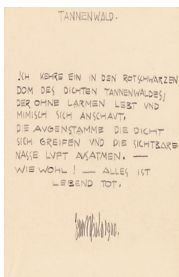 TANNENWALD.
ICH KEHRE EIN IN DEN ROTSCHWARZEN
DOM DES DICHTEN TANNENWALDES,
DER OHNE LÄRMEN LEBT UND
MIMISCH SICH ANSCHAUT.
DIE AUGENSTÄMME DIE DICHT
SICH GREIFEN UND DIE SICHTBARE
NASSE LUFT AUSATMEN. —
WIE WOHL! — ALLES IST
LEBEND TOT.